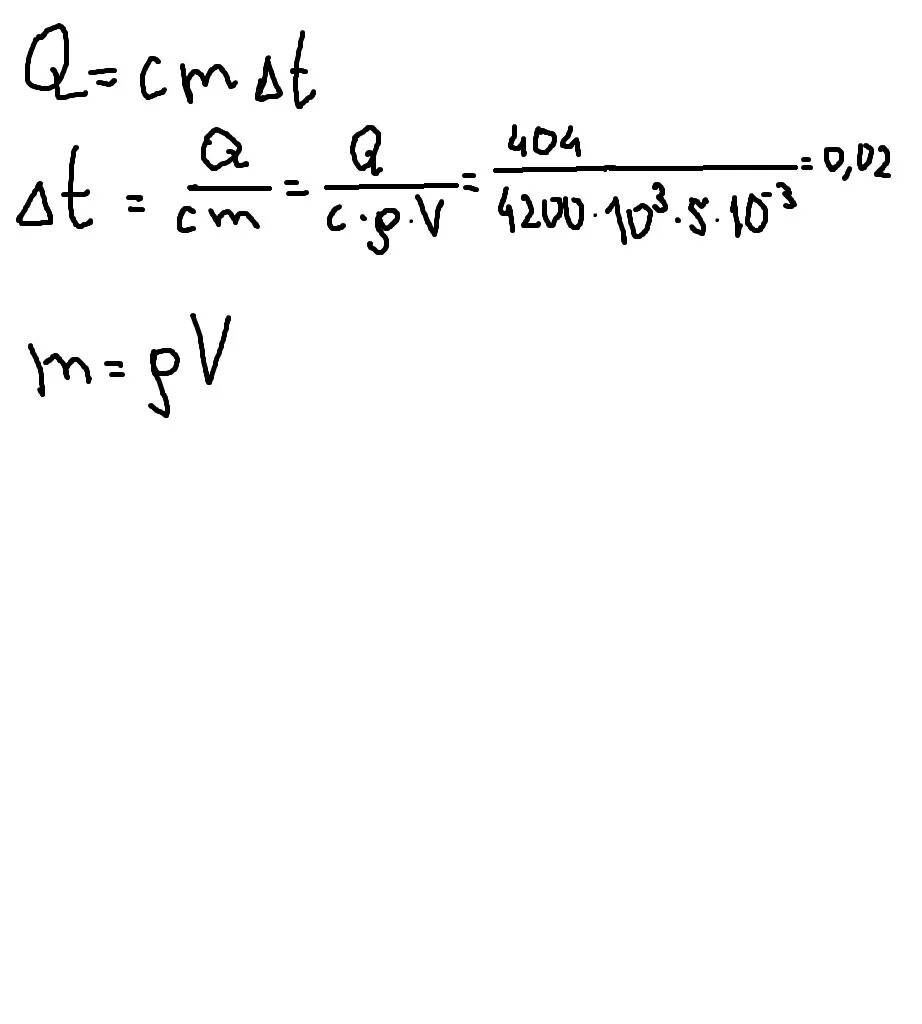 Q = cmΔt
Δt = Q/cm = Q/c·ρ·V = 404/4200·10³·5·10⁻³ = 0,02
m = ρV